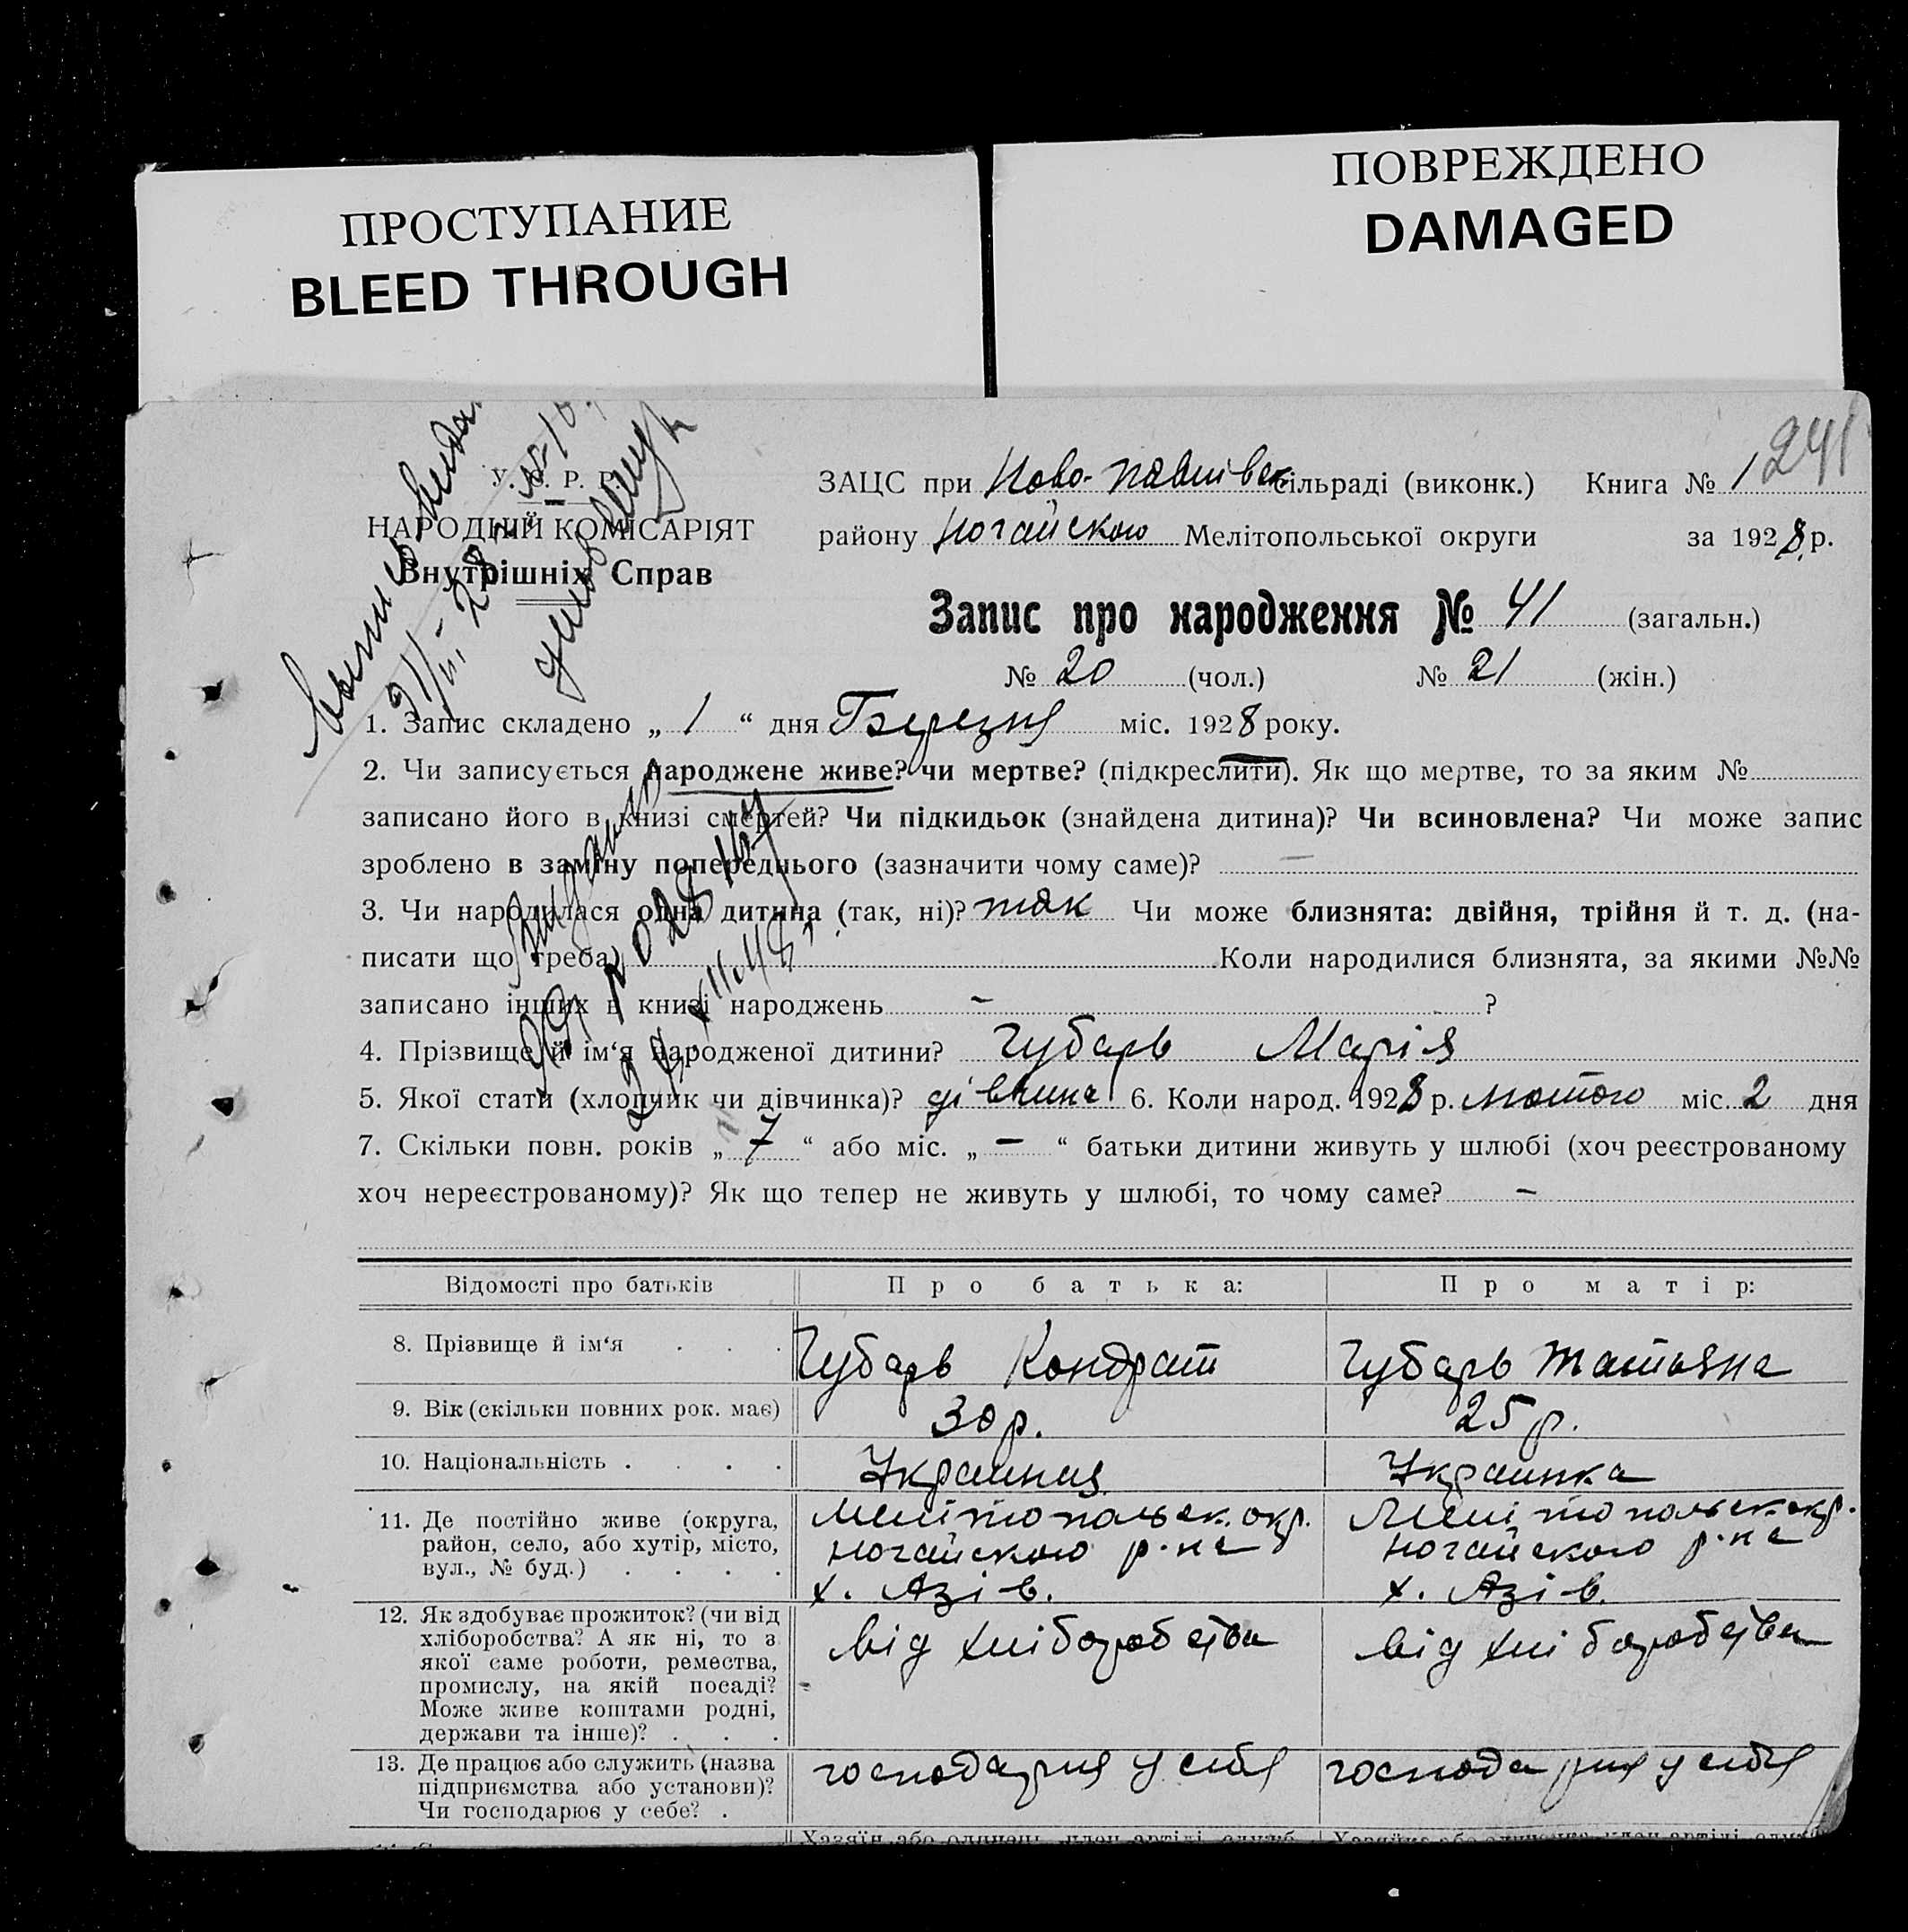 ПРОСТУПАНИЕ
BLEED THROUGH
ПОВРЕЖДЕНО
DAMAGED
241
У. С. Р. Р.
НАРОДНІЙ КОМІСАРІЯТ
Внутрішніх Справ
ЗАЦС при Ново-Павлівск. сільраді (виконк.) Книга № 1
району Ногайского Мелітопольської округи за 1928 р.
Запис про народження № 41 (загальн.)
№ 20 (чол.) № 21 (жін.)
1. Запис складено „ 1 “ дня Березня міс. 1928 року.
2. Чи записується народжене живе? чи мертве? (підкреслити). Як що мертве, то за яким №
записано його в книзі смертей? Чи підкидьок (знайдена дитина)? Чи всиновлена? Чи може запис
зроблено в заміну попереднього (зазначити чому саме)? —
3. Чи народилася одна дитина (так, ні)? так Чи може близнята: двійня, трійня й т. д. (на-
писати що треба) Коли народилися близнята, за якими №№
записано інших в книзі народжень - ?
4. Прізвище й ім‘я народженої дитини? Губарь Марія
5. Якої статі (хлопчик чи дівчинка)? дівчина 6. Коли народ. 1928 р. лютого міс. 2 дня
7. Скільки повн. років „ 7 “ або міс. „ — “ батьки дитини живуть у шлюбі (хоч реєстрованому
хоч нереєстрованому)? Як що тепер не живуть у шлюбі, то чому саме? -
Відомості про батьків Про батька: Про матір:
8. Прізвище й ім‘я Губарь Кондрат Губарь Татьяна
9. Вік (скільки повних рок. має) 30 р. 25 р.
10. Національність Украинця Украинка
11. Де постійно живе (округа, район, село, або хутір, місто, вул., № буд.)
Мелітопольск. окр. Мелітопольск. окр.
Ногайского р-на Ногайского р-на
х. Азів. х. Азів.
12. Як здобуває прожиток? (чи від
хліборобства? А як ні, то з
якої саме роботи, ремества,
промислу, на якій посаді?
Може живе коштами родні,
держави та інше)?
від хліборобства від хліборобства
13. Де працює або служить (назва
підприємства або установи)?
Чи господарює у себе?
господарня у себя господарня у себя